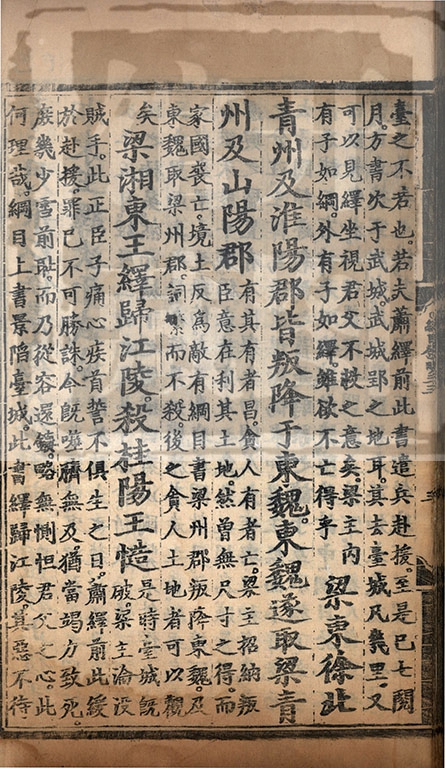 臺之不若也。若夫蕭繹前此書遣兵赴援。至是已七閱
月。方書次于武城。武城郢之地耳。其去臺城凡幾里。又
可以見繹坐視君父不救之意矣。梁主內
有子如綱。外有子如繹。雖欲不亡得乎
梁東徐北
青州及淮陽郡皆叛降于東魏。東魏遂取梁青
州及山陽郡
有其有者昌。貪人有者亡。梁主招納叛
臣意在利其土地。然曾無尺寸之得。而
家國喪亡。境土反爲敵有綱目書梁州郡叛降東魏。及
東魏取梁州郡。詞繁而不殺。後之貪人土地者可以觀
矣
梁湘東王繹歸江陵。殺桂陽王慥
是時臺城旣
破。梁主淪沒
賊手。此正臣子痛心疾首誓不俱生之日。蕭繹前此緩
於赴援。罪已不可勝誅。今旣噬臍無及猶當竭力致死。
庶幾少雪前恥而乃從容還鎮。略無惻怛君父之心。此
何理哉。綱目上書景陷臺城。此書繹歸江陵。其惡不待